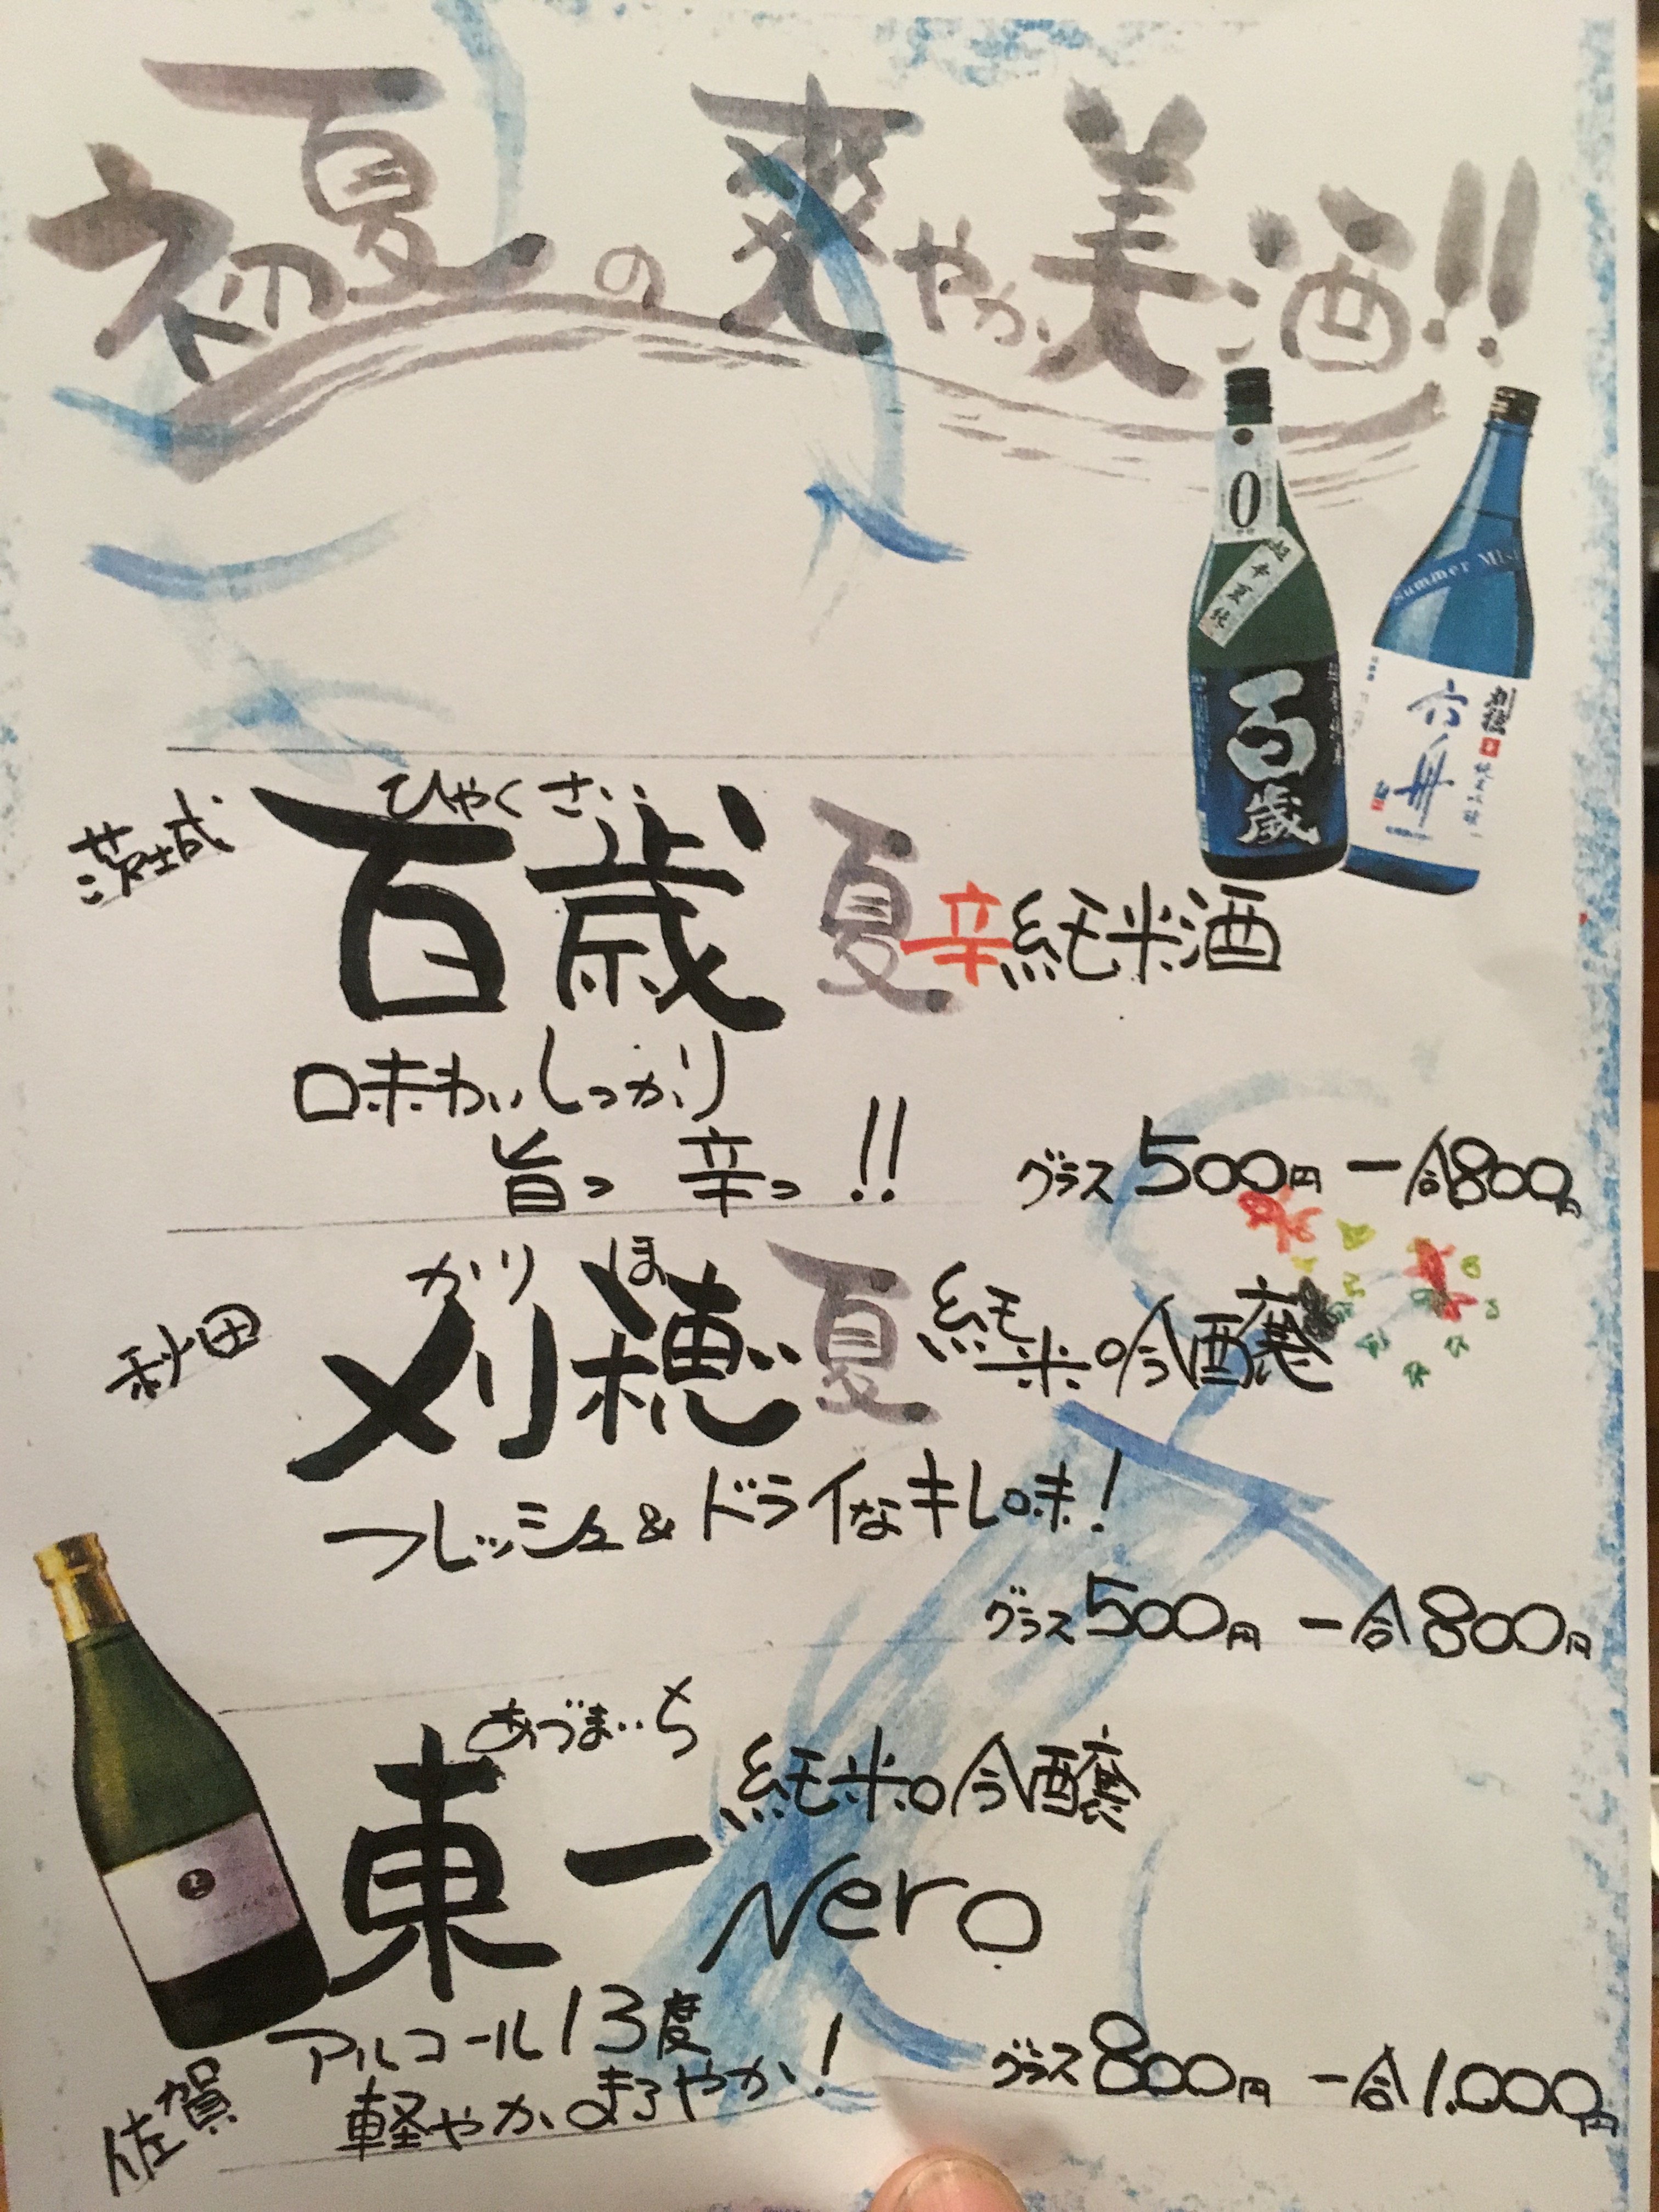 初夏の爽やか美酒!!
0
超辛夏純
百歳
Summer Mis
六華
茨城
ひゃくさい
百歳 夏辛純米酒
味わいしっかり
旨っ 辛っ!!
グラス500円 一合800円
秋田
かりほ
刈穂 夏純米吟醸
フレッシュ&ドライなキレ味!
グラス500円 一合800円
あづまいち
東一 純米吟醸
Nero
アルコール13度
軽やかまろやか!
グラス800円 一合1.000円
佐賀